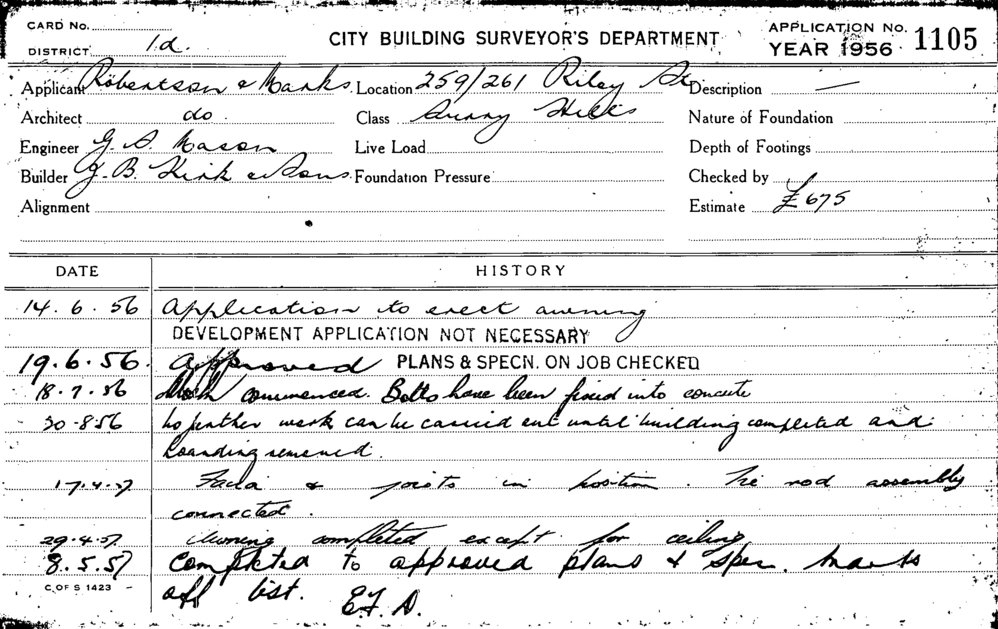 CARD No.
DISTRICT 1d.
CITY BUILDING SURVEYOR'S DEPARTMENT
APPLICATION No. 1105
YEAR 1956
Applicant Robertson & Marks. Location 259/261 Riley St Description —
Architect do. Class Surry Hills Nature of Foundation
Engineer G. S. Mason Live Load Depth of Footings
Builder G. B. Kirk & Sons. Foundation Pressure Checked by
Alignment Estimate £675
DATE HISTORY
14. 6. 56 Application to erect awning
DEVELOPMENT APPLICATION NOT NECESSARY
19. 6. 56. Approved PLANS & SPECN. ON JOB CHECKED
18. 7. 56 Work commenced. Bolts have been fixed into concrete
30-8-56 No further work can be carried out until building completed and
hoarding removed.
17.4.57 Facia & joists in position. Tie rod assembly
connected.
29.4.57 Awning completed except for ceiling
8.5.57 Completed to approved plans & spec.
off list. E.F.D.
C. OF S 1423